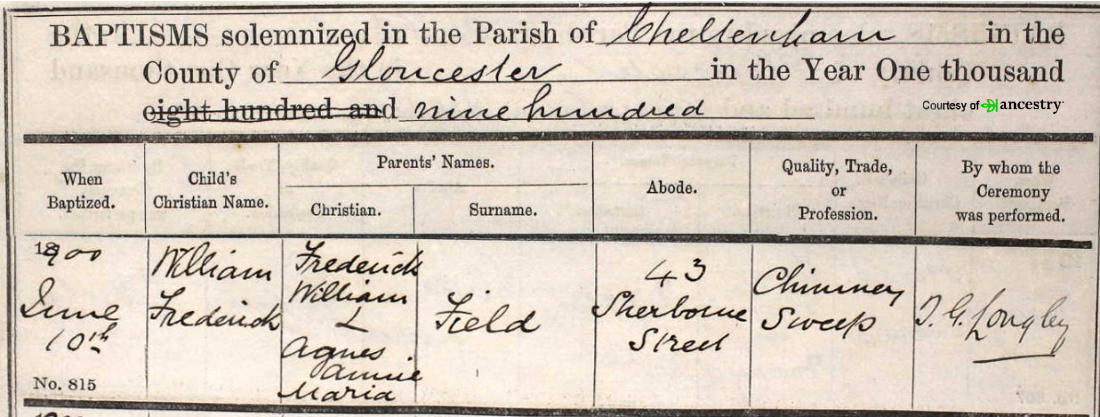 BAPTISMS solemnized in the Parish of Cheltenham in the
County of Gloucester in the Year One thousand
eight hundred and nine hundred
Courtesy of ancestry
When Baptized.
Child's Christian Name.
Parents' Names.
Christian.
Surname.
Abode.
Quality, Trade, or Profession.
By whom the Ceremony was performed.
1900
June
10th
No. 815
William
Frederick
Frederick
William
&
Agnes
Annie
Maria
Field
43
Sherborne
Street
Chimney
Sweep
T. G. Longley